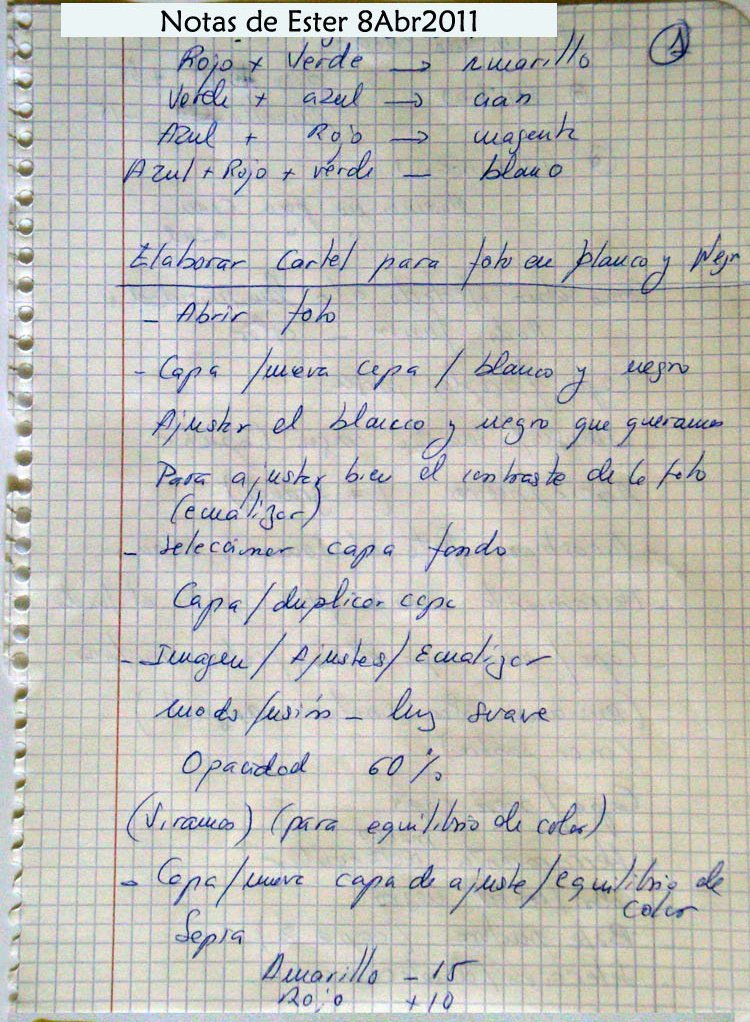 Notas de Ester 8Abr2011
1
Rojo + Verde → Amarillo
Verde + azul → cian
Azul + Rojo → magenta
Azul + Rojo + verde — blanco
Elaborar Cartel para foto en blanco y Negr
- Abrir foto
- Capa / nueva capa / blanco y negro
Ajustar el blanco y negro que queramos
Para ajustar bien el contraste de la foto
(ecualizar)
- Seleccionar capa fondo
Capa / duplicar capa
- Imagen / Ajustes / Ecualizar
modo fusión - luz suave
Opacidad 60%
(Viramos) (para equilibrio de color)
- Capa / nueva capa de ajuste / equilibrio de
color
Sepia
Amarillo - 15
Rojo + 10